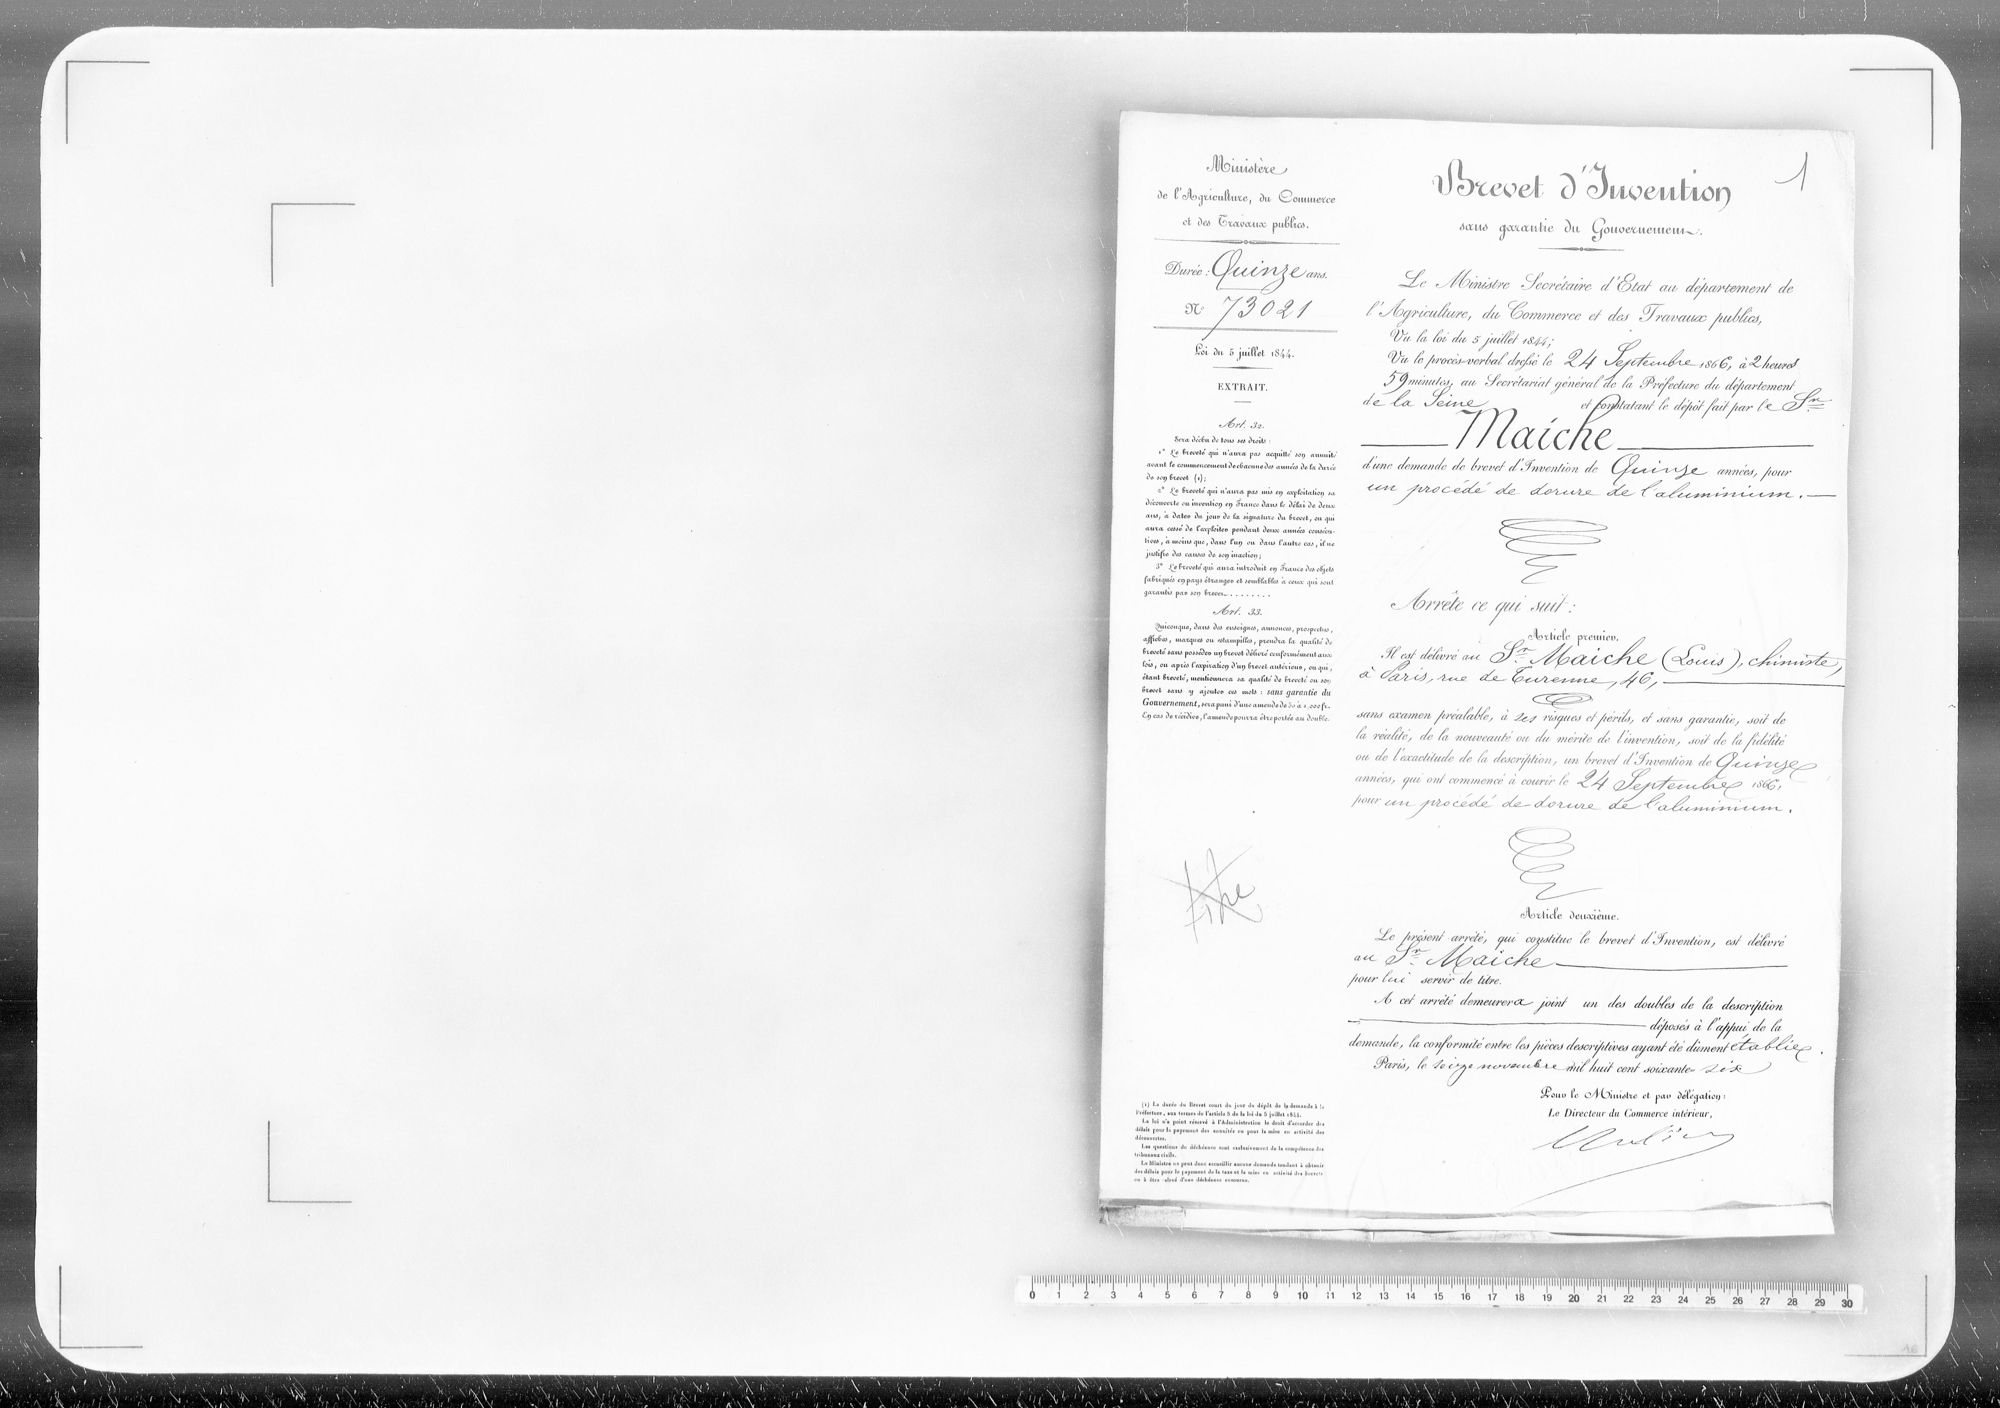 Ministère
de l'Agriculture, du Commerce
et des Travaux publics.
Durée : Quinze ans.
N° 73021
Loi du 5 juillet 1844.
EXTRAIT.
Art. 32.
Sera déchu de tous ses droits :
1° Le breveté qui n'aura pas acquitté son annuité
avant le commencement de chacune des années de la durée
de son brevet (1);
2° Le breveté qui n'aura pas mis en exploitation sa
découverte ou invention en France dans le délai de deux
ans, à dater du jour de la signature du brevet, ou qui
aura cessé de l'exploiter pendant deux années consécu-
tives, à moins que, dans l'un ou dans l'autre cas, il ne
justifie des causes de son inaction;
3° Le breveté qui aura introduit en France des objets
fabriqués en pays étranger et semblables à ceux qui sont
garantis par son brevet.........
Art. 33.
Quiconque, dans des enseignes, annonces, prospectus,
affiches, marques ou stampilles, prendra la qualité de
breveté sans posséder un brevet délivré conformément aux
lois, ou après l'expiration d'un brevet antérieur, ou qui,
étant breveté, mentionnera sa qualité de breveté ou son
brevet sans y ajouter ces mots : sans garantie du
Gouvernement, sera puni d'une amende de 50 à 1,000 fr.
En cas de récidive, l'amende pourra être portée au double.
titre
(1) La durée du Brevet court du jour du dépôt de la demande à la
Préfecture, aux termes de l'article 8 de la loi du 5 juillet 1844.
La loi n'a point réservé à l'Administration le droit d'accorder des
délais pour le payement des annuités ou pour la mise en activité des
découvertes.
Les questions de déchéance sont exclusivement de la compétence des
tribunaux civils.
Le Ministre ne peut donc accueillir aucune demande tendant à obtenir
des délais pour le payement de la taxe et la mise en activité des brevets
ou à être relevé d'une déchéance encourue.
1
Brevet d'Invention
sans garantie du Gouvernement.
Le Ministre Secrétaire d'Etat au département de
l'Agriculture, du Commerce et des Travaux publics,
Vu la loi du 5 juillet 1844;
Vu le procès-verbal dressé le 24 Septembre 1866, à 2 heures
59 minutes, au Secrétariat général de la Préfecture du département
de la Seine et constatant le dépôt fait par le Sr
Maiche
d'une demande de brevet d'Invention de Quinze années, pour
un procédé de dorure de l'aluminium.
Arrête ce qui suit :
Article premier.
Il est délivré au Sr Maiche (Louis), chimiste,
à Paris, rue de Turenne, 46,
sans examen préalable, à ses risques et périls, et sans garantie, soit de
la réalité, de la nouveauté ou du mérite de l'invention, soit de la fidélité
ou de l'exactitude de la description, un brevet d'Invention de Quinze
années, qui ont commencé à courir le 24 Septembre 1866,
pour un procédé de dorure de l'aluminium.
Article deuxième.
Le présent arrêté, qui constitue le brevet d'Invention, est délivré
au Sr Maiche
pour lui servir de titre.
A cet arrêté demeurera joint un des doubles de la description
déposés à l'appui de la
demande, la conformité entre les pièces descriptives ayant été dûment établie.
Paris, le seize novembre mil huit cent soixante-six
Pour le Ministre et par délégation :
Le Directeur du Commerce intérieur,
0 1 2 3 4 5 6 7 8 9 10 11 12 13 14 15 16 17 18 19 20 21 22 23 24 25 26 27 28 29 30
16